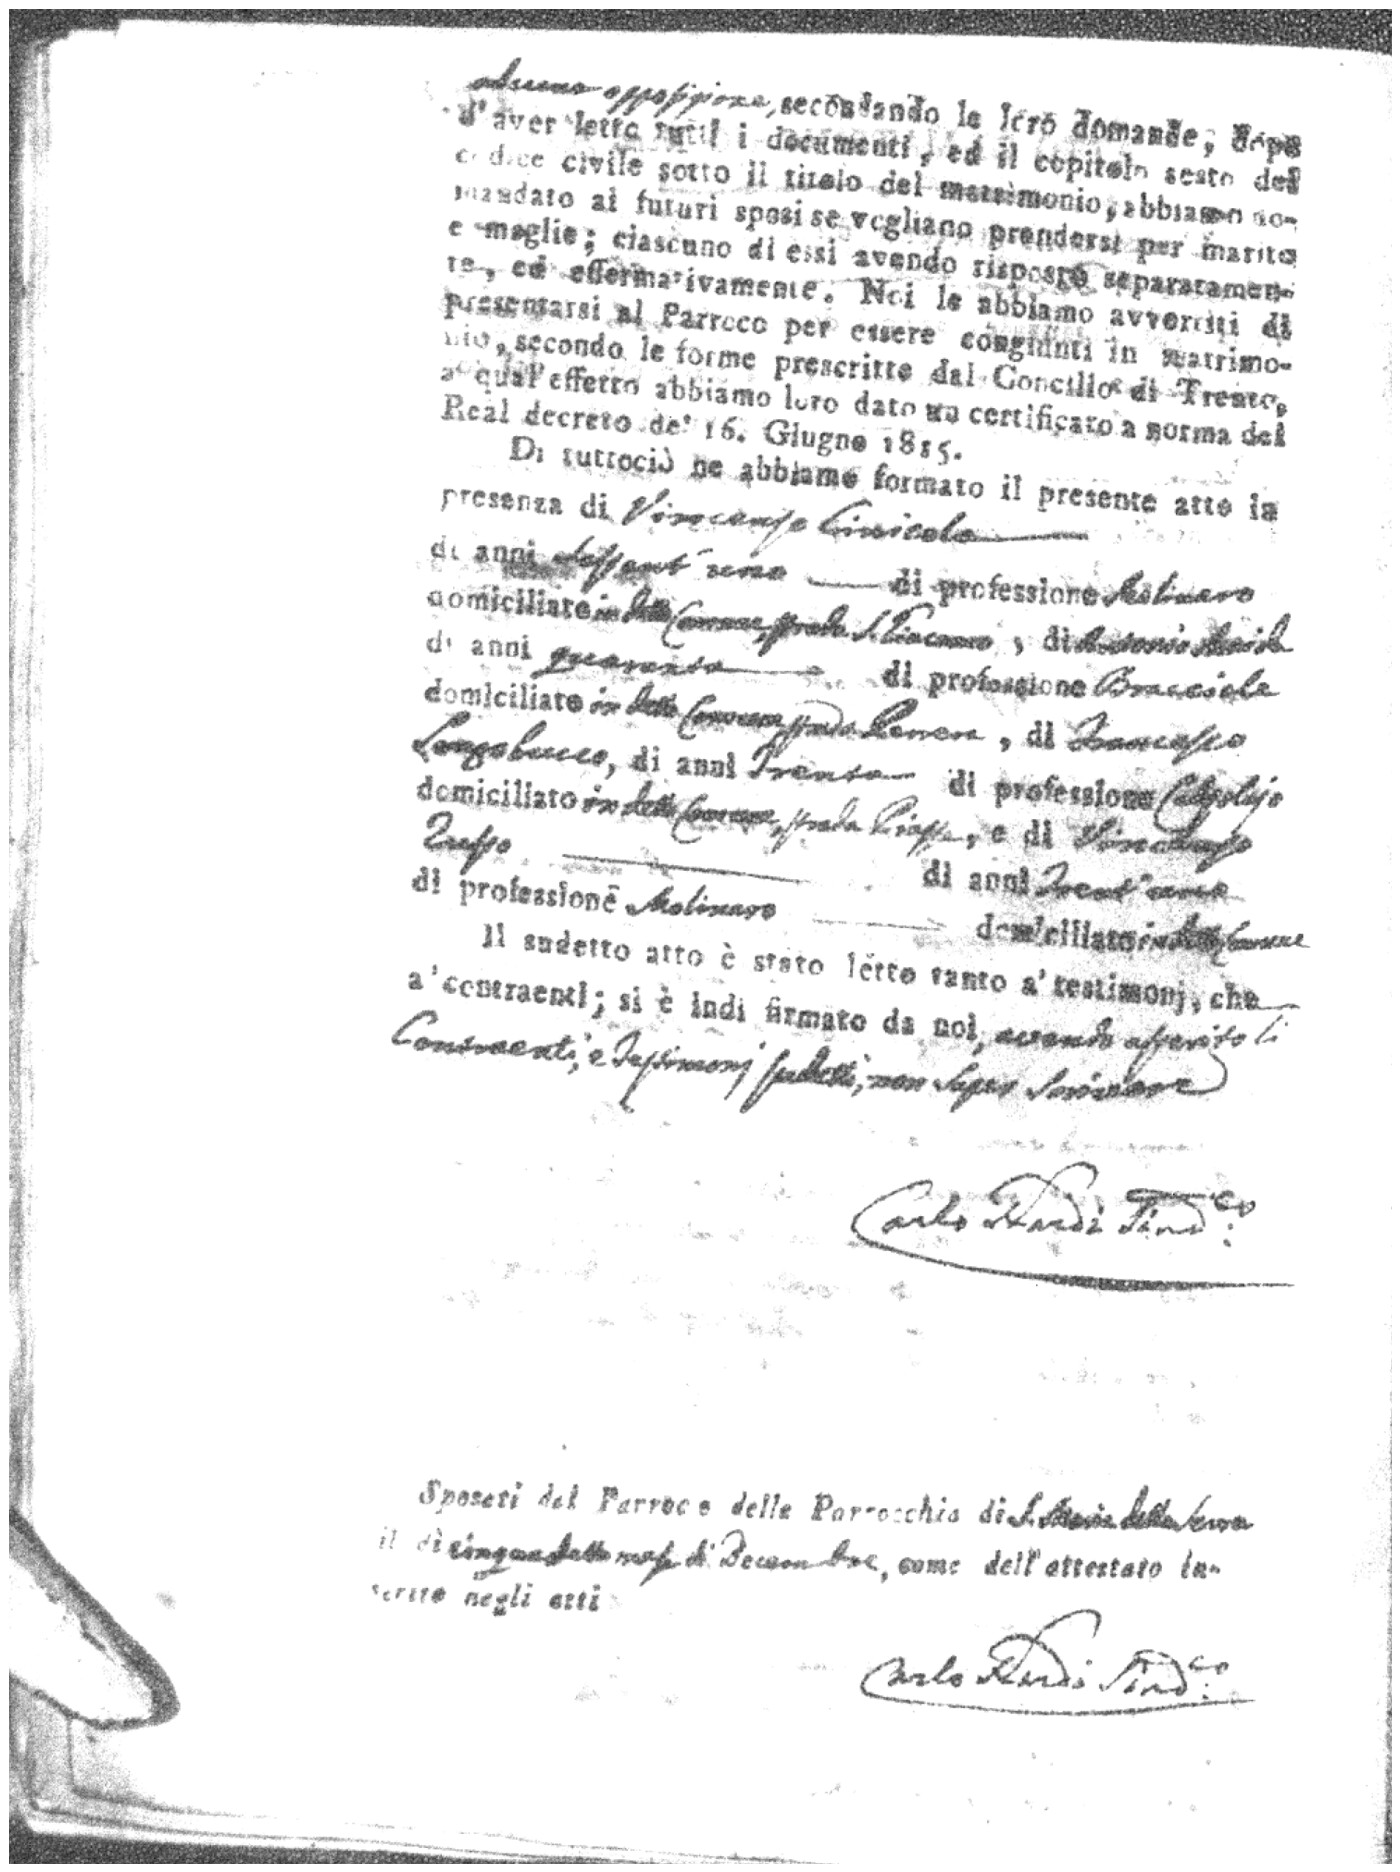 alcuna opposizione, secondando le loro domande, dopo
d'aver letto tutti i documenti, ed il copitolo sesto del
codice civile sotto il titolo del matrimonio, abbiamo do-
mandato ai futuri sposi se vogliano prendersi per marito
e moglie; ciascuno di essi avendo risposto separatamen-
te, ed affermativamente. Noi le abbiamo avvertiti di
presentarsi al Parroco per essere congiunti in matrimo-
nio, secondo le forme prescritte dal Concilio di Trento,
a qual'effetto abbiamo loro dato un certificato a norma del
Real decreto de' 16. Giugno 1815.
Di tuttociò ne abbiamo formato il presente atto in
presenza di Vincenzo
di anni sessant'uno di professione Molinaro
domiciliato in detto Comune, strada S. Giacomo, di Antonio
di anni quaranta di professione Bracciale
domiciliato in detto Comune strada, di Francesco
Longobucco, di anni Trenta di professione Calzolajo
domiciliato in detto Comune, strada Piazza, e di Vincenzo
di anni Trent'uno
di professione Molinaro domiciliato in detto Comune
Il sudetto atto è stato letto tanto a' testimonj, che
a' contraenti; si è indi firmato da noi, avendo asserito li
Contraenti, e Testimonj sudetti, non saper scrivere
Carlo Sind.co
Sposati dal Parroco della Parrocchia di S. Maria della Serra
il dì cinque detto mese di Decembre, come dell'attestato in-
serito negli atti
Carlo Sind.co